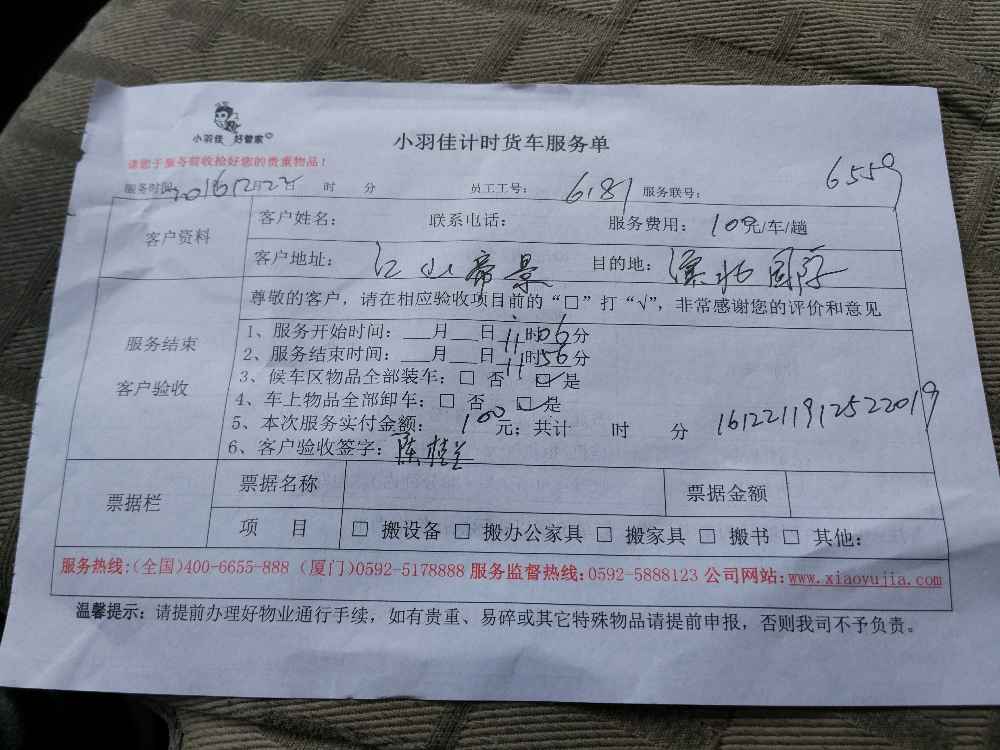 小羽佳 好管家
小羽佳计时货车服务单
请您于服务前收拾好您的贵重物品！
服务时间：2016年12月22日 时 分 员工工号：6181 服务联号：6559
客户资料
客户姓名： 联系电话： 服务费用：100元/车/趟
客户地址：江山帝景 目的地：
尊敬的客户，请在相应验收项目前的“□”打“√”，非常感谢您的评价和意见
服务结束
客户验收
1、服务开始时间：___月___日11时06分
2、服务结束时间：___月___日11时56分
3、候车区物品全部装车：□ 否 ☑ 是
4、车上物品全部卸车：□ 否 ☑ 是
5、本次服务实付金额：100元；共计 时 分 1612211912522019
6、客户验收签字：陈桂兰
票据栏
票据名称 票据金额
项 目 □ 搬设备 □ 搬办公家具 □ 搬家具 □ 搬书 □ 其他：
服务热线：(全国)400-6655-888 (厦门)0592-5178888 服务监督热线：0592-5888123 公司网站：www.xiaoyujia.com
温馨提示：请提前办理好物业通行手续，如有贵重、易碎或其它特殊物品请提前申报，否则我司不予负责。